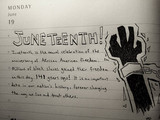 MONDAY
June
19
JUNETEENTH!
Juneteenth is the annual celebration of the
anniversary of African American Freedom.
Millions of black slaves gained their freedom
on this day, years ago! It is an important
date in our nation's history, forever changing
the way we live and treat others.